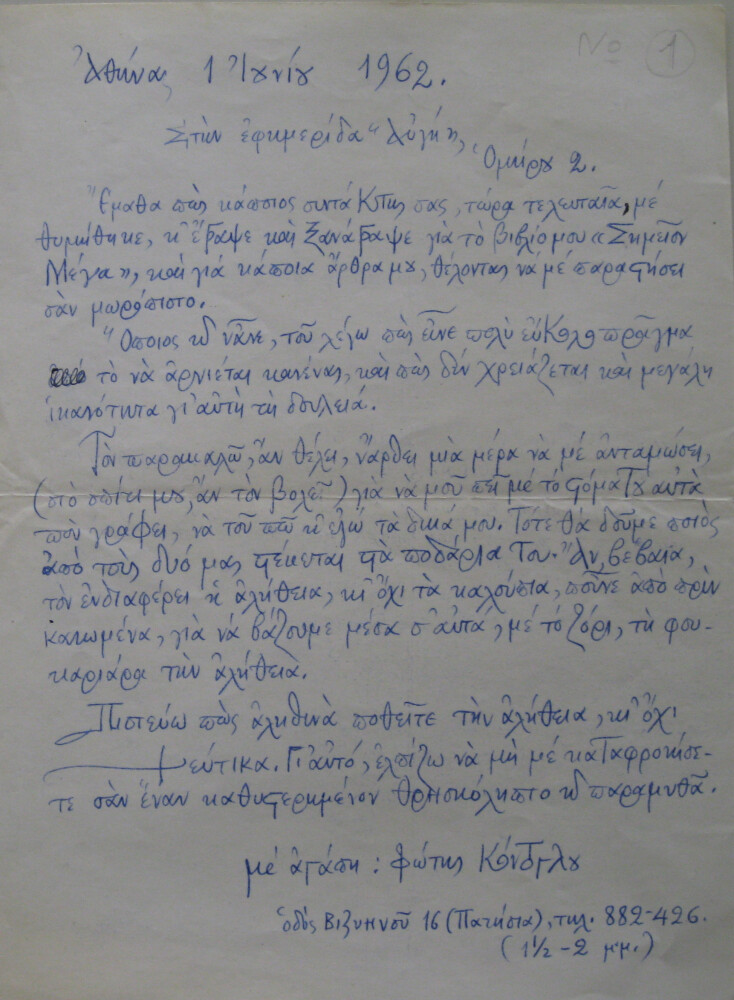 Νο 1
Ἀθήνα, 1 Ἰουνίου 1962.
Στὴν ἐφημερίδα "Αὐγή",
Ὁμήρου 2.
Ἔμαθα πὼς κάποιος συντάκτης σας, τώρα τελευταῖα, μὲ
θυμήθηκε, κ' ἔγραψε καὶ ξανάγραψε γιὰ τὸ βιβλίο μου «Σημεῖον
Μέγα», καὶ γιὰ κάποια ἄρθρα μου, θέλοντας νὰ μὲ παραστήσει
σὰν μωρόπιστο.
Ὅποιος κι' νἆνε, τοῦ λέγω πὼς εἶνε πολὺ εὔκολο πρᾶγμα
τὸ νὰ ἀρνιέται κανένας, καὶ πὼς δὲν χρειάζεται καὶ μεγάλη
ἱκανότητα γι' αὐτὴ τὴ δουλειά.
Τὸν παρακαλῶ, ἂν θέλει, νἄρθει μιὰ μέρα νὰ μὲ ἀνταμώσει,
(στὸ σπίτι μου, ἂν τὸν βολεῖ) γιὰ νὰ μοῦ πεῖ μὲ τὸ στόμα του αὐτὰ
ποὺ γράφει, νὰ τοῦ πῶ κ' ἐγὼ τὰ δικά μου. Τότε θὰ δοῦμε ποιὸς
ἀπὸ τοὺς δυό μας στέκεται στὰ ποδάρια του. Ἄν, βέβαια,
τὸν ἐνδιαφέρει ἡ ἀλήθεια, κι' ὄχι τὰ καλούπια, ποὖνε ἀπὸ πρὶν
καμωμένα, γιὰ νὰ βάζουμε μέσα σ' αὐτά, μὲ τὸ ζόρι, τὴ φου-
καριάρα τὴν ἀλήθεια.
Πιστεύω πὼς ἀληθινὰ ποθεῖτε τὴν ἀλήθεια, κι' ὄχι
ψεύτικα. Γι' αὐτό, ἐλπίζω νὰ μὴ μὲ καταφρονήσε-
τε σὰν ἕναν καθυστερημένον θρησκόληπτο κι' παραμυθᾶ.
μὲ ἀγάπη: Φώτης Κόντογλου
ὁδὸς Βιζυηνοῦ 16 (Πατήσια), τηλ. 882-426.
(1½ - 2 μ.μ.)